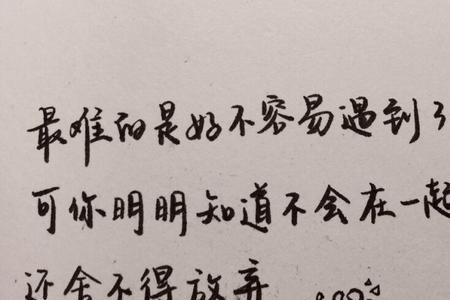 最难的是好不容易遇到了
可你明明知道不会在一起
还舍不得放弃